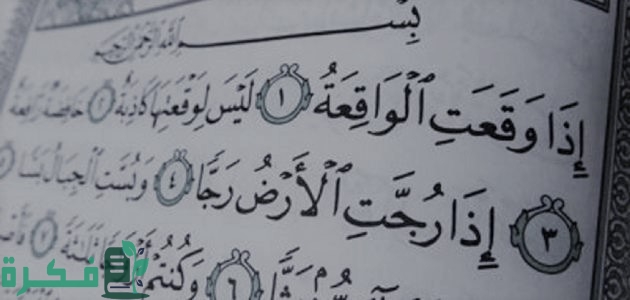 بِسْمِ ٱللَّهِ ٱلرَّحْمَٰنِ ٱلرَّحِيمِ
إِذَا وَقَعَتِ ٱلْوَاقِعَةُ ١ لَيْسَ لِوَقْعَتِهَا كَاذِبَةٌ ٢ خَافِضَةٌ رَّافِعَةٌ
٣ إِذَا رُجَّتِ ٱلْأَرْضُ رَجًّا ٤ وَبُسَّتِ ٱلْجِبَالُ بَسًّا ٥
٦ وَكُنتُمْ أَزْوَٰجًا ثَلَٰثَةً ٧
فكرة